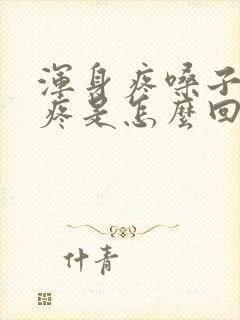 渾身疼嗓子
疼是怎麼回
什青